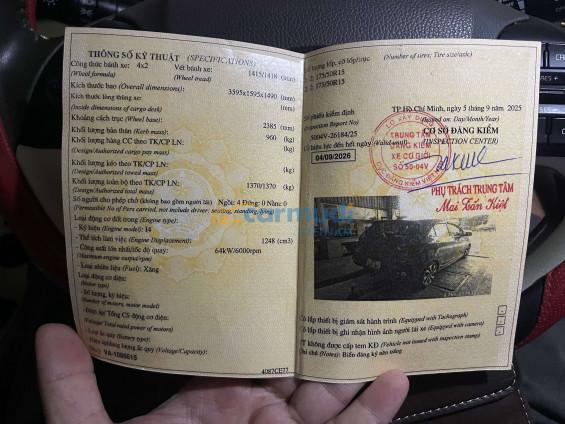 THÔNG SỐ KỸ THUẬT (SPECIFICATIONS)
Công thức bánh xe: 4x2 Vết bánh xe: 1415/1418 (mm)
(Wheel formula) (Wheel tread)
Kích thước bao (Overall dimensions): 3595x1595x1490 (mm)
Kích thước lòng thùng xe: (mm)
(Inside dimensions of cargo deck)
Khoảng cách trục (Wheel base): 2385 (mm)
Khối lượng bản thân (Kerb mass): 960 (kg)
Khối lượng hàng CC theo TK/CP LN: (kg)
(Design/Authorized pay load)
Khối lượng kéo theo TK/CP LN: (kg)
(Design/Authorized towed mass)
Khối lượng toàn bộ theo TK/CP LN: 1370/1370 (kg)
(Design/Authorized total mass)
Số người cho phép chở (không bao gồm người lái): Ngồi: 4 Đứng: 0 Nằm: 0
(Permissible No of Pers carried, not include driver: seating, standing, lying)
Loại động cơ đốt trong (Engine type):
- Ký hiệu (Engine model): I4
- Thể tích làm việc (Engine Displacement): 1248 (cm3)
- Công suất lớn nhất/tốc độ quay: 64kW/6000rpm
(Maximum output/rpm)
- Loại nhiên liệu (Fuel): Xăng
Loại động cơ điện:
(Motor type)
- Số lượng, ký hiệu:
(Number of motors, motor model)
- Điện áp/ Tổng CS động cơ điện:
(Voltage/ Total rated power of motors)
(Battery type):
(Voltage/Capacity):
VA-1086615
4087CE77
Số lượng lốp, cỡ lốp/trục (Number of tires; Tire size/axle)
1: 2; 175/50R15
2: 2; 175/50R15
Số phiếu kiểm định
(Inspection Report No)
5004V-26184/25
Có hiệu lực đến hết ngày (Valid until)
04/09/2026
TP Hồ Chí Minh, ngày 5 tháng 9 năm 2025
(Issued on: Day/Month/Year)
CƠ SỞ ĐĂNG KIỂM
(INSPECTION CENTER)
TRUNG TÂM
ĐĂNG KIỂM
XE CƠ GIỚI
SỐ 50-04V
CỤC ĐĂNG KIỂM VIỆT NAM
PHỤ TRÁCH TRUNG TÂM
Mai Tấn Kiệt
carmudi
VIETNAM
Có lắp thiết bị giám sát hành trình (Equipped with Tachograph)
Có lắp thiết bị ghi nhận hình ảnh người lái xe (Equipped with camera)
PT không được cấp tem KĐ (Vehicle not issued with inspection stamp)
Ghi chú (Notes): Biển đăng ký nền trắng